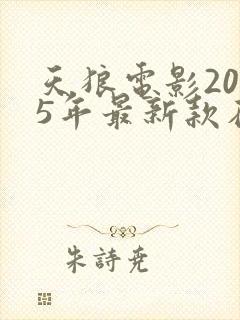 天狼電影20
5年最新款
朱詩尭